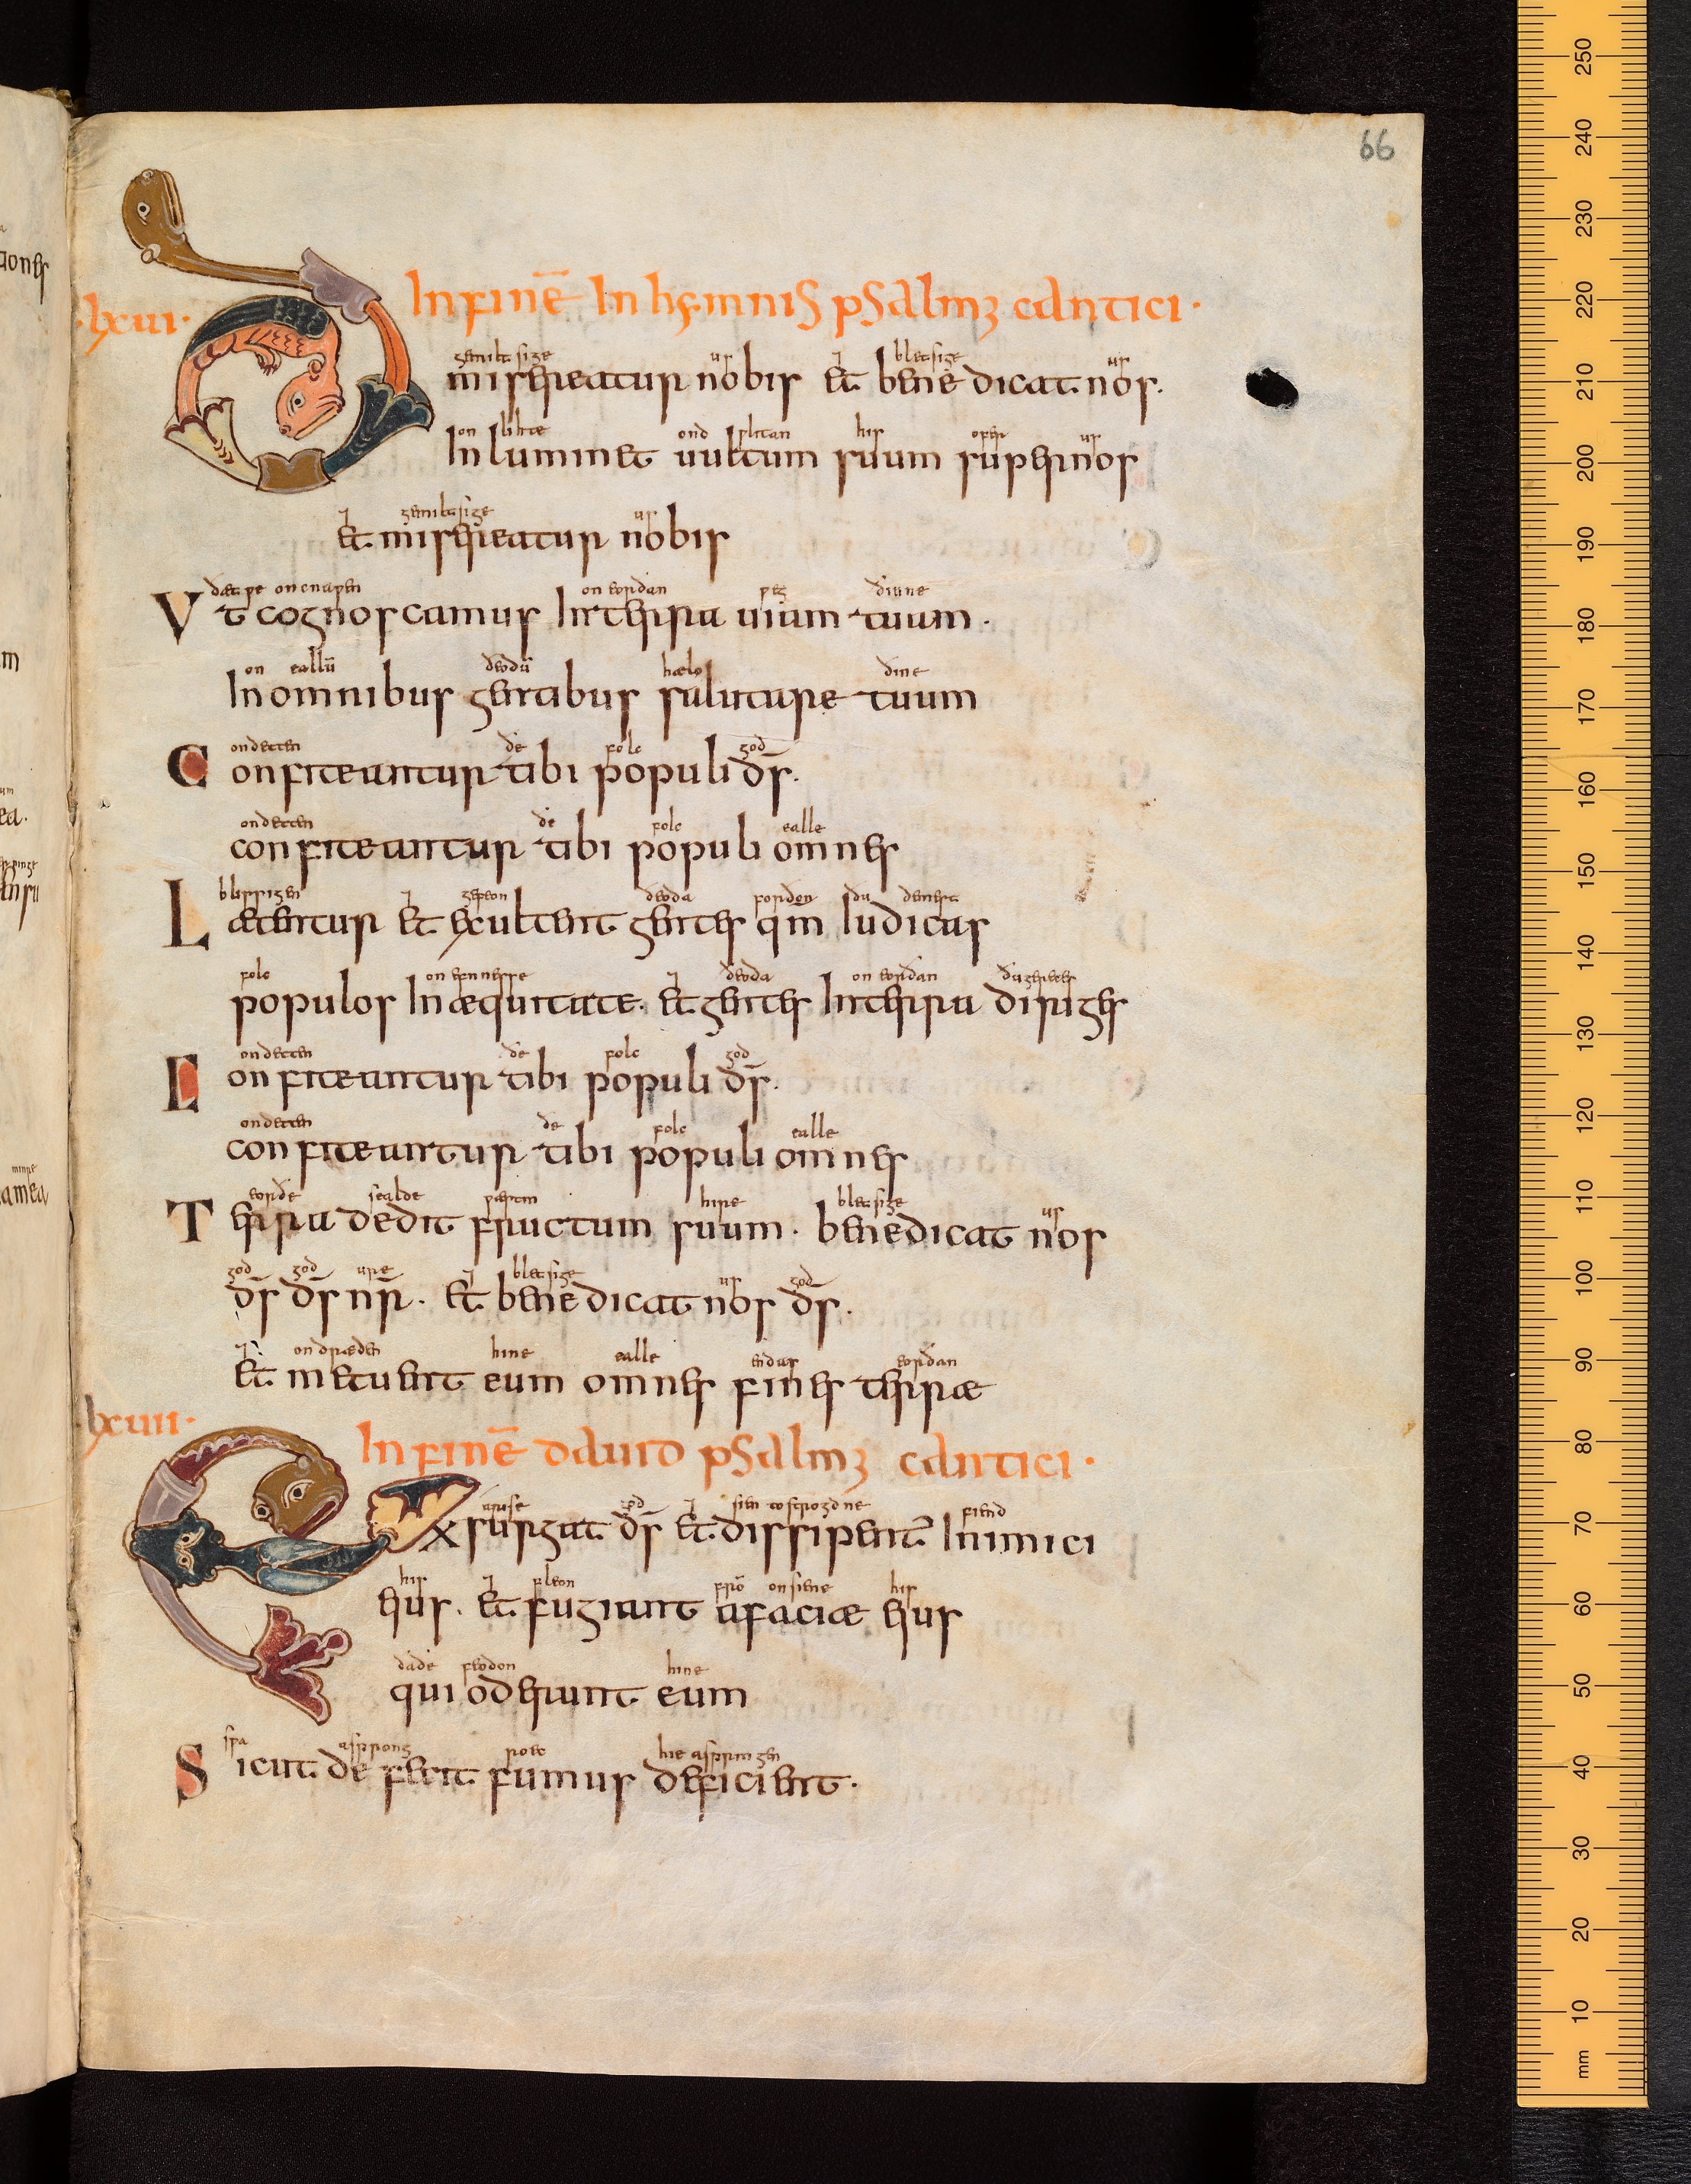 66
·lxui·
In finē In hẏmnis psalmꝫ cantici·
gemiltsige us ⁊ bletsige us
Dms misereatur nobis et benedicat nos.
on lihte ond plitan his ofer us
Inluminet uultum suum super nos
⁊ gemiltsige us
et misereatur nobis
ðæt pe oncnapen on eorðan peg ðinne
Vt cognoscamus In terra uiam tuum·
on eallū ðeodū hælo ðine
In omnibus gentibus salutare tuum
ondetten ðe folc god
Confiteantur tibi populi d̄s.
ondetten ðe folc ealle
confiteantur tibi populi omnes
blissigen ⁊ gefeon ðeoda forðon ðu demest
Lætentur et exultent gentes qm Iudicas
folc on efnnesse ⁊ ðeoda on eorðan ðu gereces
populos In æquitate. et gentes In terra diriges
ondetten ðe folc god
Confiteantur tibi populi d̄s.
ondetten ðe folc ealle
confiteantur tibi populi omnes
eorðe sealde pæstm hire bletsige us
Terra dedit fructum suum. benedicat nos
god god ure ⁊ bletsige us god
d̄s d̄s nr̄. et benedicat nos d̄s.
⁊ ondræden hine ealle endas eorðan
et metuent eum omnes fines terræ
lxuii·
In finē dauid psalmꝫ cantici·
arise god ⁊ sien tostrogdne fiend
Exsurgat d̄s et dissipent̄ Inimici
his ⁊ fleon frō onsiene his
eius. et fugiant a faciæ eius
ðaðe feodon hine
qui oderunt eum
spa asprong rec hie aspringen
Sicut defecit fumus deficient.
250
240
230
220
210
200
190
180
170
160
150
140
130
120
110
100
90
80
70
60
50
40
30
20
10
mm